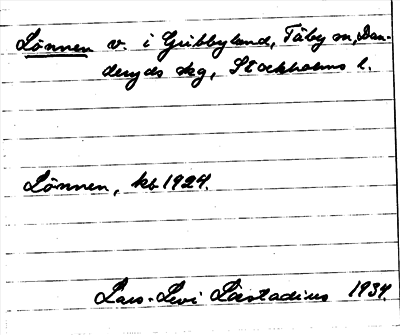 Lönnen v. i Gribbylund, Täby sn, Dan-
deryds skg, Stockholms l.
Lönnen, kb 1924.
Lars-Levi Læstadius 1934.